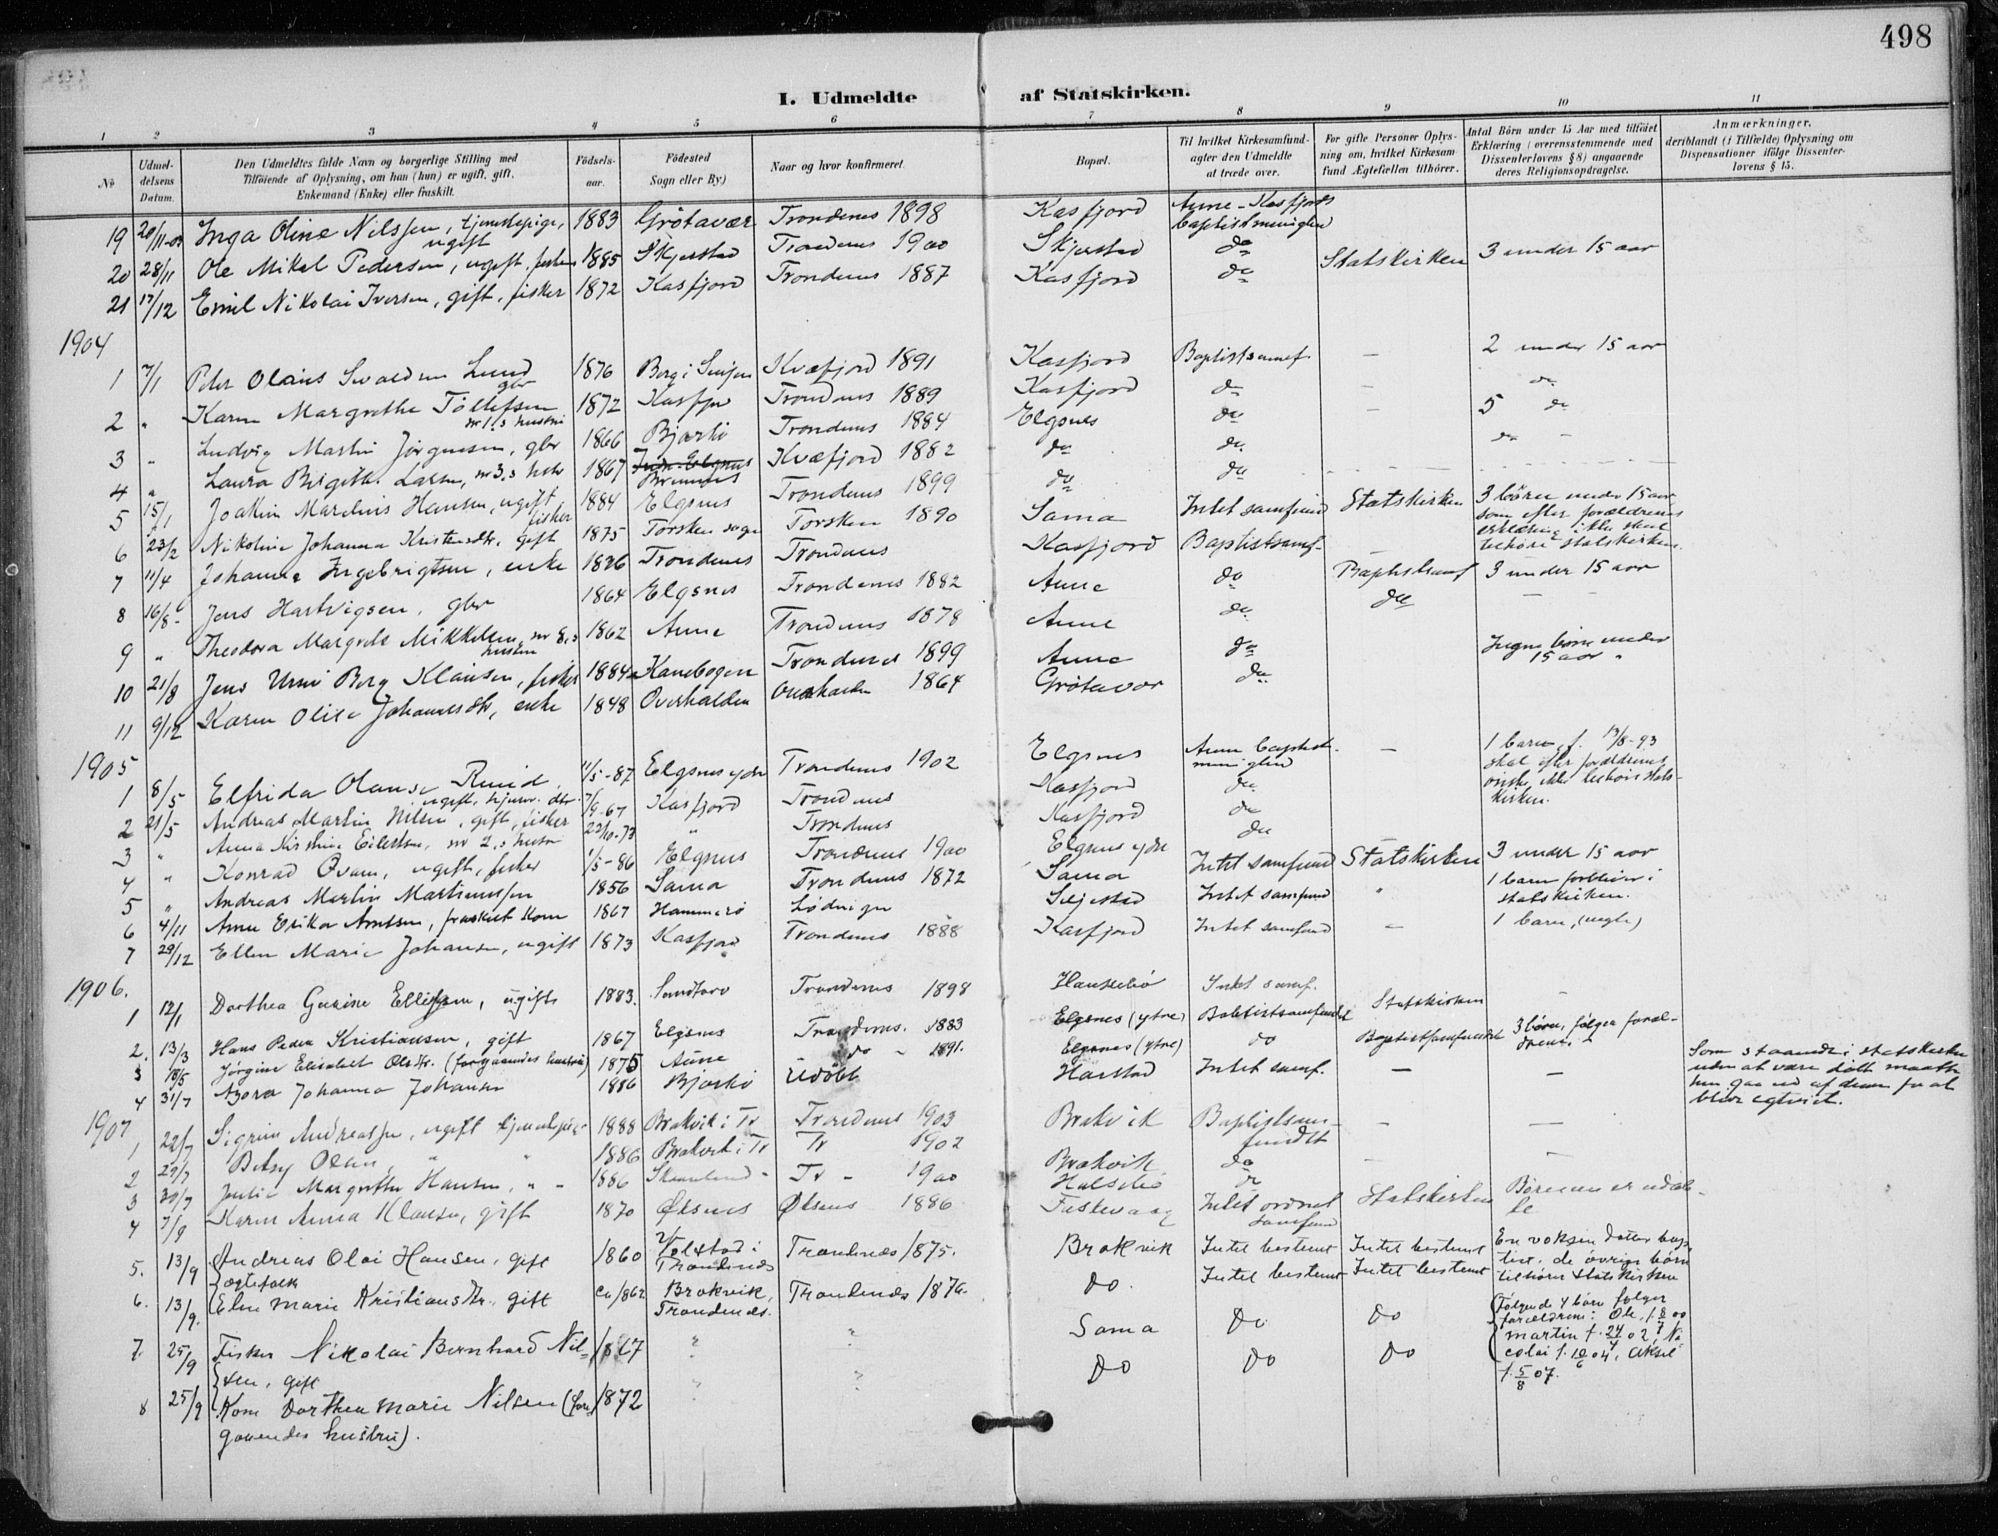 498
I. Udmeldte af Statskirken.
1 2 3 4 5 6 7 8 9 10 11
No
Udmeldelsens Datum.
Den Udmeldtes fulde Navn og borgerlige Stilling med Tilføiende af Oplysning, om han (hun) er ugift, gift, Enkemand (Enke) eller fraskilt.
Fødselsaar.
Fødested Sogn eller By)
Naar og hvor konfirmeret.
Bopæl.
Til hvilket Kirkesamfund agter den Udmeldte at træde over.
For gifte Personer Oplysning om, hvilket Kirkesamfund Ægtefællen tilhører.
Antal Børn under 15 Aar med tilføiet Erklæring (overensstemmende med Dissenterlovens § 8) angaaende deres Religionsopdragelse.
Anmærkninger, deriblandt (i Tilfælde) Oplysning om Dispensationer ifølge Dissenterlovens § 15.
19 20/11-03 Inga Oline Nilssen, tjenestepige, ugift 1883 Grötavær Trondenes 1898 Kasfjord Aune-Kasfjords baptistmenighed
20 28/11 Ole Mikal Pedersen, ugift, fisker 1885 Skjerstad Trondenes 1900 Skjerstad do
21 17/12 Emil Nikolai Iversen, gift, fisker 1872 Kasfjord Trondenes 1887 Kasfjord do Statskirken 3 under 15 aar
1904
1 7/1 Peter Olaus Lund gbr 1876 Berg i Senjen Kvæfjord 1891 Kasfjord Baptistsamf. — 2 under 15 aar
2 " Karen Margrethe Tollefsen nr 1.s hustru 1872 Kasfjord Trondenes 1889 Kasfjord do — do
3 " Ludvig Martin Jörgensen, gbr 1866 Bjarkö Trondenes 1884 Elgsnes do — 5 do
4 " Laura Birgitte Larsen, nr 3.s hustr 1867 Kvæfjord 1882 do do do
5 15/1 Joakim Marelius Hansen, ugift, fisker 1884 Elgsnes Trondenes 1899 do do
6 23/2 Nikoline Johanna Kristensdtr. gift 1875 Torsken sogn Torsken 1890 Sama Intet samfund Statskirken 3 börn under 15 aar som efter forældrenes erklæring ikke skal tilhöre statskirken.
7 11/4 Johanna Ingebrigtsen, enke 1826 Trondenes Trondenes Kasfjord Baptistsamf. —
8 16/8 Jens Hartvigsen, gbr 1864 Elgsnes Trondenes 1882 Aune do Baptistsamf 3 under 15 aar
9 " Theodora Margrete Mikkelsen, nr 8.s hustru 1862 Aune Trondenes 1878 Aune do do — —
10 21/8 Jens Berg Klausen, fisker 1884 Kanebogen Trondenes 1899 Aune do Ingen börn under 15 aar
11 9/12 Karen Olise Johannesdtr, enke 1848 Overhalden Overhalden 1864 Grötavær do
1905
1 8/5 Elfrida Olausa Ruud, ugift, 11/5-87 Elgsnes ydre Trondenes 1902 Elgsnes Aune baptistmenighed — 1 barn, f. 13/8-93 skal efter forældrenes önske ikke tilhöre statskirken.
2 21/5 Andreas Martin Nilsen, gift, fisker 7/9-67 Kasfjord Trondenes Kasfjord do
3 " Anna Kirstine Eilertsen, nr 2.s hustru 22/10-73 " Trondenes Kasfjord do
4 " Konrad Ovam, ugift, fisker 1/5-86 Elgsnes Trondenes 1900 Elgsnes ydre do
5 " Andreas Martin Martinussen 1856 Sama Trondenes 1872 Sama Intet samfund Statskirken 3 under 15 aar
6 4/11 Anne Erika Arntsen, fraskilt kone 1867 Hammerö Lödingen Intet samfund " 1 barn forbliver i statskirken.
7 29/12 Ellen Marie Johansen, ugift 1873 Kasfjord Trondenes 1888 Kasfjord Intet samfund — 1 barn, (uegte)
1906.
1 12/1 Dorthea Gurine Ellefsen, ugift 1883. Sandtorv Trondenes 1898 Intet samf. —
2. 13/3 Hans Peder Kristiansen, gift 1867 Elgsnes Trondenes. 1883 Elgsnes (ytre) Babtistsamfundet Statskirken
3 18/5 Jörgine Elisabet Olsdtr. (forgaaendes hustru) 1875 Aune do " 1891. Elgsnes (ytre) do Baptistsamfundet 3 börn, fölger forældrene
4 31/7 Azora Johanna Johansen 1886 Bjarkö Udöbt Harstad Intet samf. — — Som staaende i statskirken uden at være döbt maatte hun gaa ud af denne for at blive egtviet.
1907
1 22/7 Sigrun Andreassen, ugift tjenestepige 1888 Brokvik i Tr Trondenes 1903 Brokvik Baptistsamfundet — —
2 29/7 Betsy Olsen, " " 1886 Brokvik i Tr Tr 1902 Brokvik do — —
3 30/7 Julie Margrethe Hansen, " " 1886 Tr " 1900 Halsebö do
4 7/9 Karen Anna Klausen, gift 1870 Øksnes Øksnes 1886 Intet ordnet samfund Statskirken Börnene er udöbte
5. 13/9 Andreas Olai Hansen, gift 1860 i Trondenæs Trondenæs 1875. Brokvik Intet bestemt Intet bestemt En voksen datter baptist, de övrige börn tilhörer Statskirken
ægtefolk
6. 13/9. Elen Marie Kristiansdtr. gift ca 1862 Brokvik, Trondenæs. Trondenæs 1876. do. Intet bestemt Intet bestemt
7. 25/9 Fisker Nikolai Bernhard Nilsen, gift 1867 " " Sama Do Do Fölgende 4 börn fölger forældrene: Ole, f. 8/7 00 Martin f. 24/4 02, Nicolai f. 10/6 04, Aksel f. 5/8 07.
8 25/9 Kone Dorthea Marie Nilsen (foregaaendes hustru). 1872 " " Do Do Do